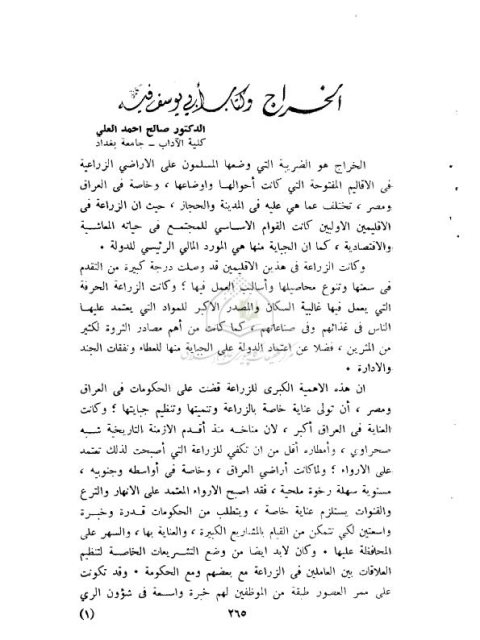 الخراج وكتاب أبي يوسف فيه
الدكتور صالح احمد العلي
كلية الآداب – جامعة بغداد
الخراج هو الضريبة التي وضعها المسلمون على الاراضي الزراعية
في الاقاليم المفتوحة التي كانت أحوالهـا واوضاعها ، وخاصة في العراق
ومصر ، تختلف عما هي عليه في المدينة والحجاز ، حيث ان الزراعة في
الاقليمين الاولين كانت القوام الاساسي للمجتمـع فـي حياته المعاشيـة
والاقتصادية ، كما ان الجباية منها هي المورد المالي الرئيسي للدولة •
وكانت الزراعة في هذين الاقليمين قد وصلت درجة كبيرة من التقدم
في سعتها وتنوع محاصيلها وأساليب العمل فيها ؛ وكانت الزراعة الحرفة
التي يعمل فيها غالبية السكان والمصدر الأكبر للمواد التي يعتمد عليهـا
الناس في غذائهم وفي صناعاتهم ، كما كانت من أهم مصادر الثروة لكثير
من المثرين ، فضلا عن اعتماد الدولة على الجباية منها للعطاء ونفقات الجند
والادارة •
ان هذه الاهمية الكبرى للزراعة قضت على الحكومات في العراق
ومصر ، أن تولى عناية خاصة بالزراعة وتنميتها وتنظيم جبايتها ؛ وكانت
العناية في العراق أكبر ، لان مناخـه منذ أقـدم الازمنة التاريخية شبـه
صحراوي ، وأمطاره أقل من ان تكفي للزراعة التي أصبحت لذلك تعتمد
على الارواء ؛ ولماكانت أراضي العراق ، وخاصة في أواسطه وجنوبه ،
مستوية سهلة رخوة ملحية ، فقد اصبح الارواء المعتمد على الانهار والترع
والقنوات يستلزم عناية خاصة ، ويتطلب من الحكومات قـدرة وخبـرة
واسعتين لكي تتمكن من القيام بالمشاريع الكبيرة ، والعناية بها ، والسهر على
المحافظة عليها • وكان لابد ايضا من وضع التشـريعات الخاصـة لتنظيم
العلاقات بين العاملين في الزراعة مع بعضهم ومع الحكومة • وقد تكونت
على ممر العصور طبقة من الموظفين لهم خبرة واسعـة في شؤون الري
٢٦٥
(١)